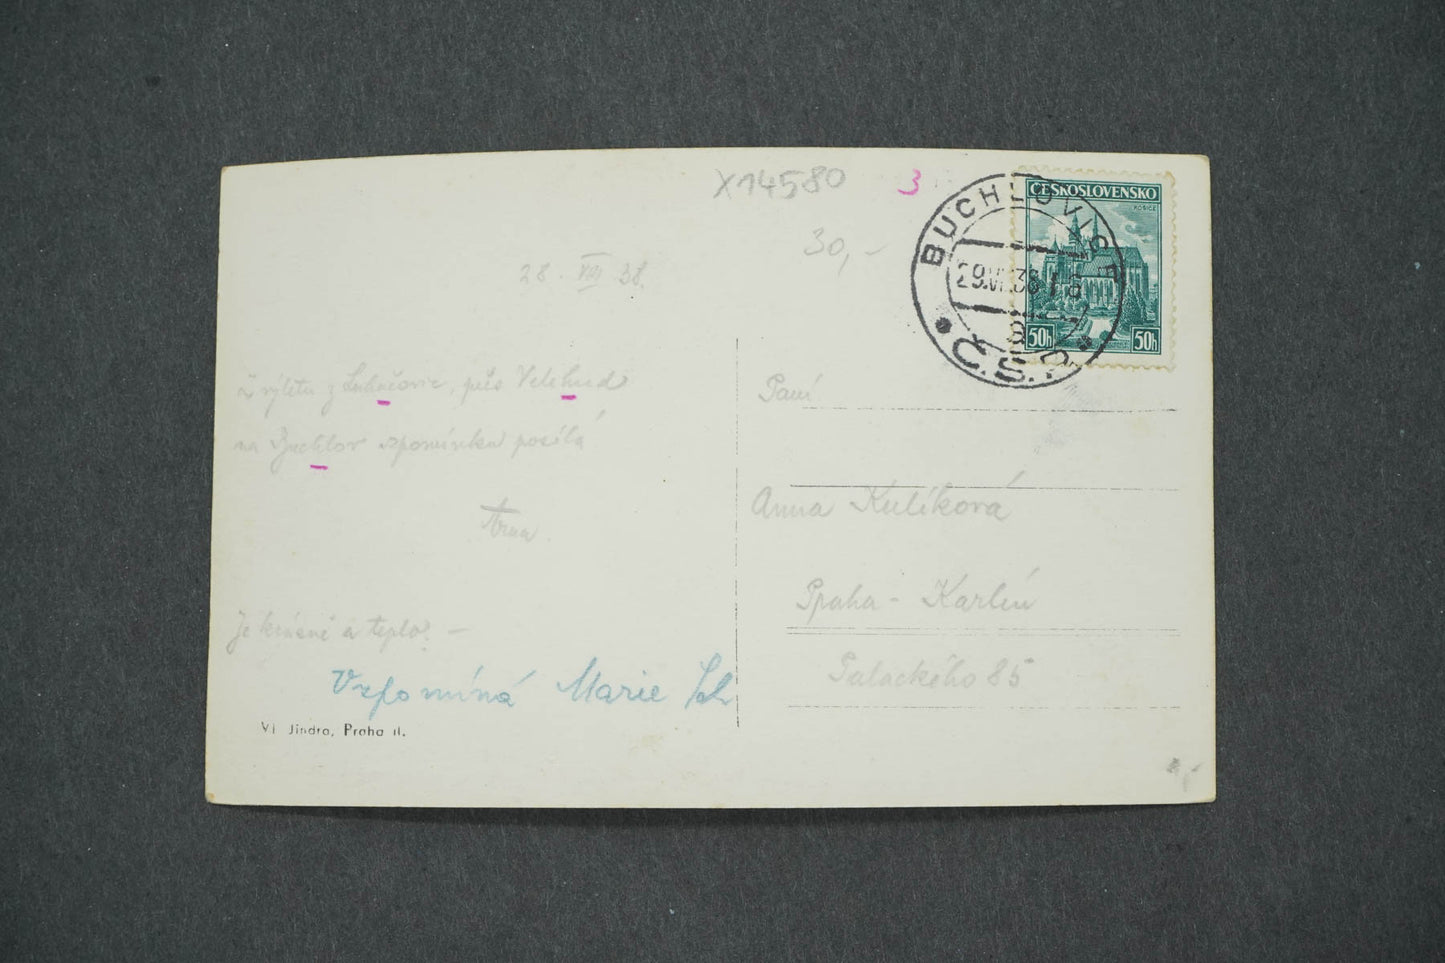 X14580
3
30,-
28. VIII 38.
BUCHLOVICE
29.VI.38
Č.S.
ČESKOSLOVENSKO
KOŠICE
50h 50h
z výletu z Luhačovic, přes Velehrad
na Buchlov vzpomínku posílá
Je krásně a teplo. –
Vzpomíná Marie
Vl. Jindra, Praha II.
Paní
Anna Kulíková
Praha - Karlín
Palackého 85